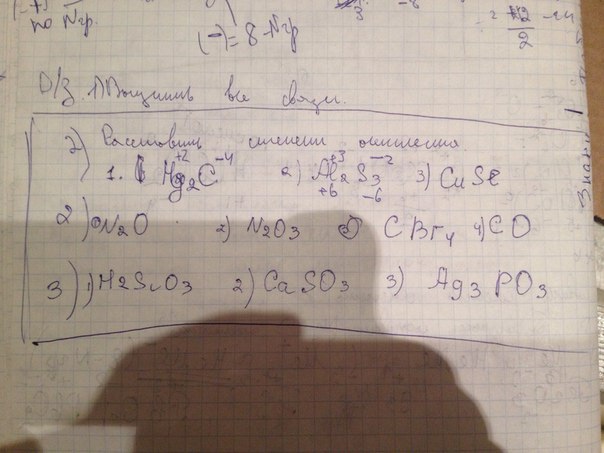 по Nгр. (-) = 8 - Nгр
Д/З. 1) Выучить все связи.
2) Расставить степени окисления
1. Mg₂⁺²C⁻⁴ 2) Al₂⁺³S₃⁻² 3) CuSe
+6 -6
2) N₂O 2) N₂O₃ 3) CBr₄ 4) CO
3) 1) H₂SiO₃ 2) CaSO₃ 3) Ag₃PO₃